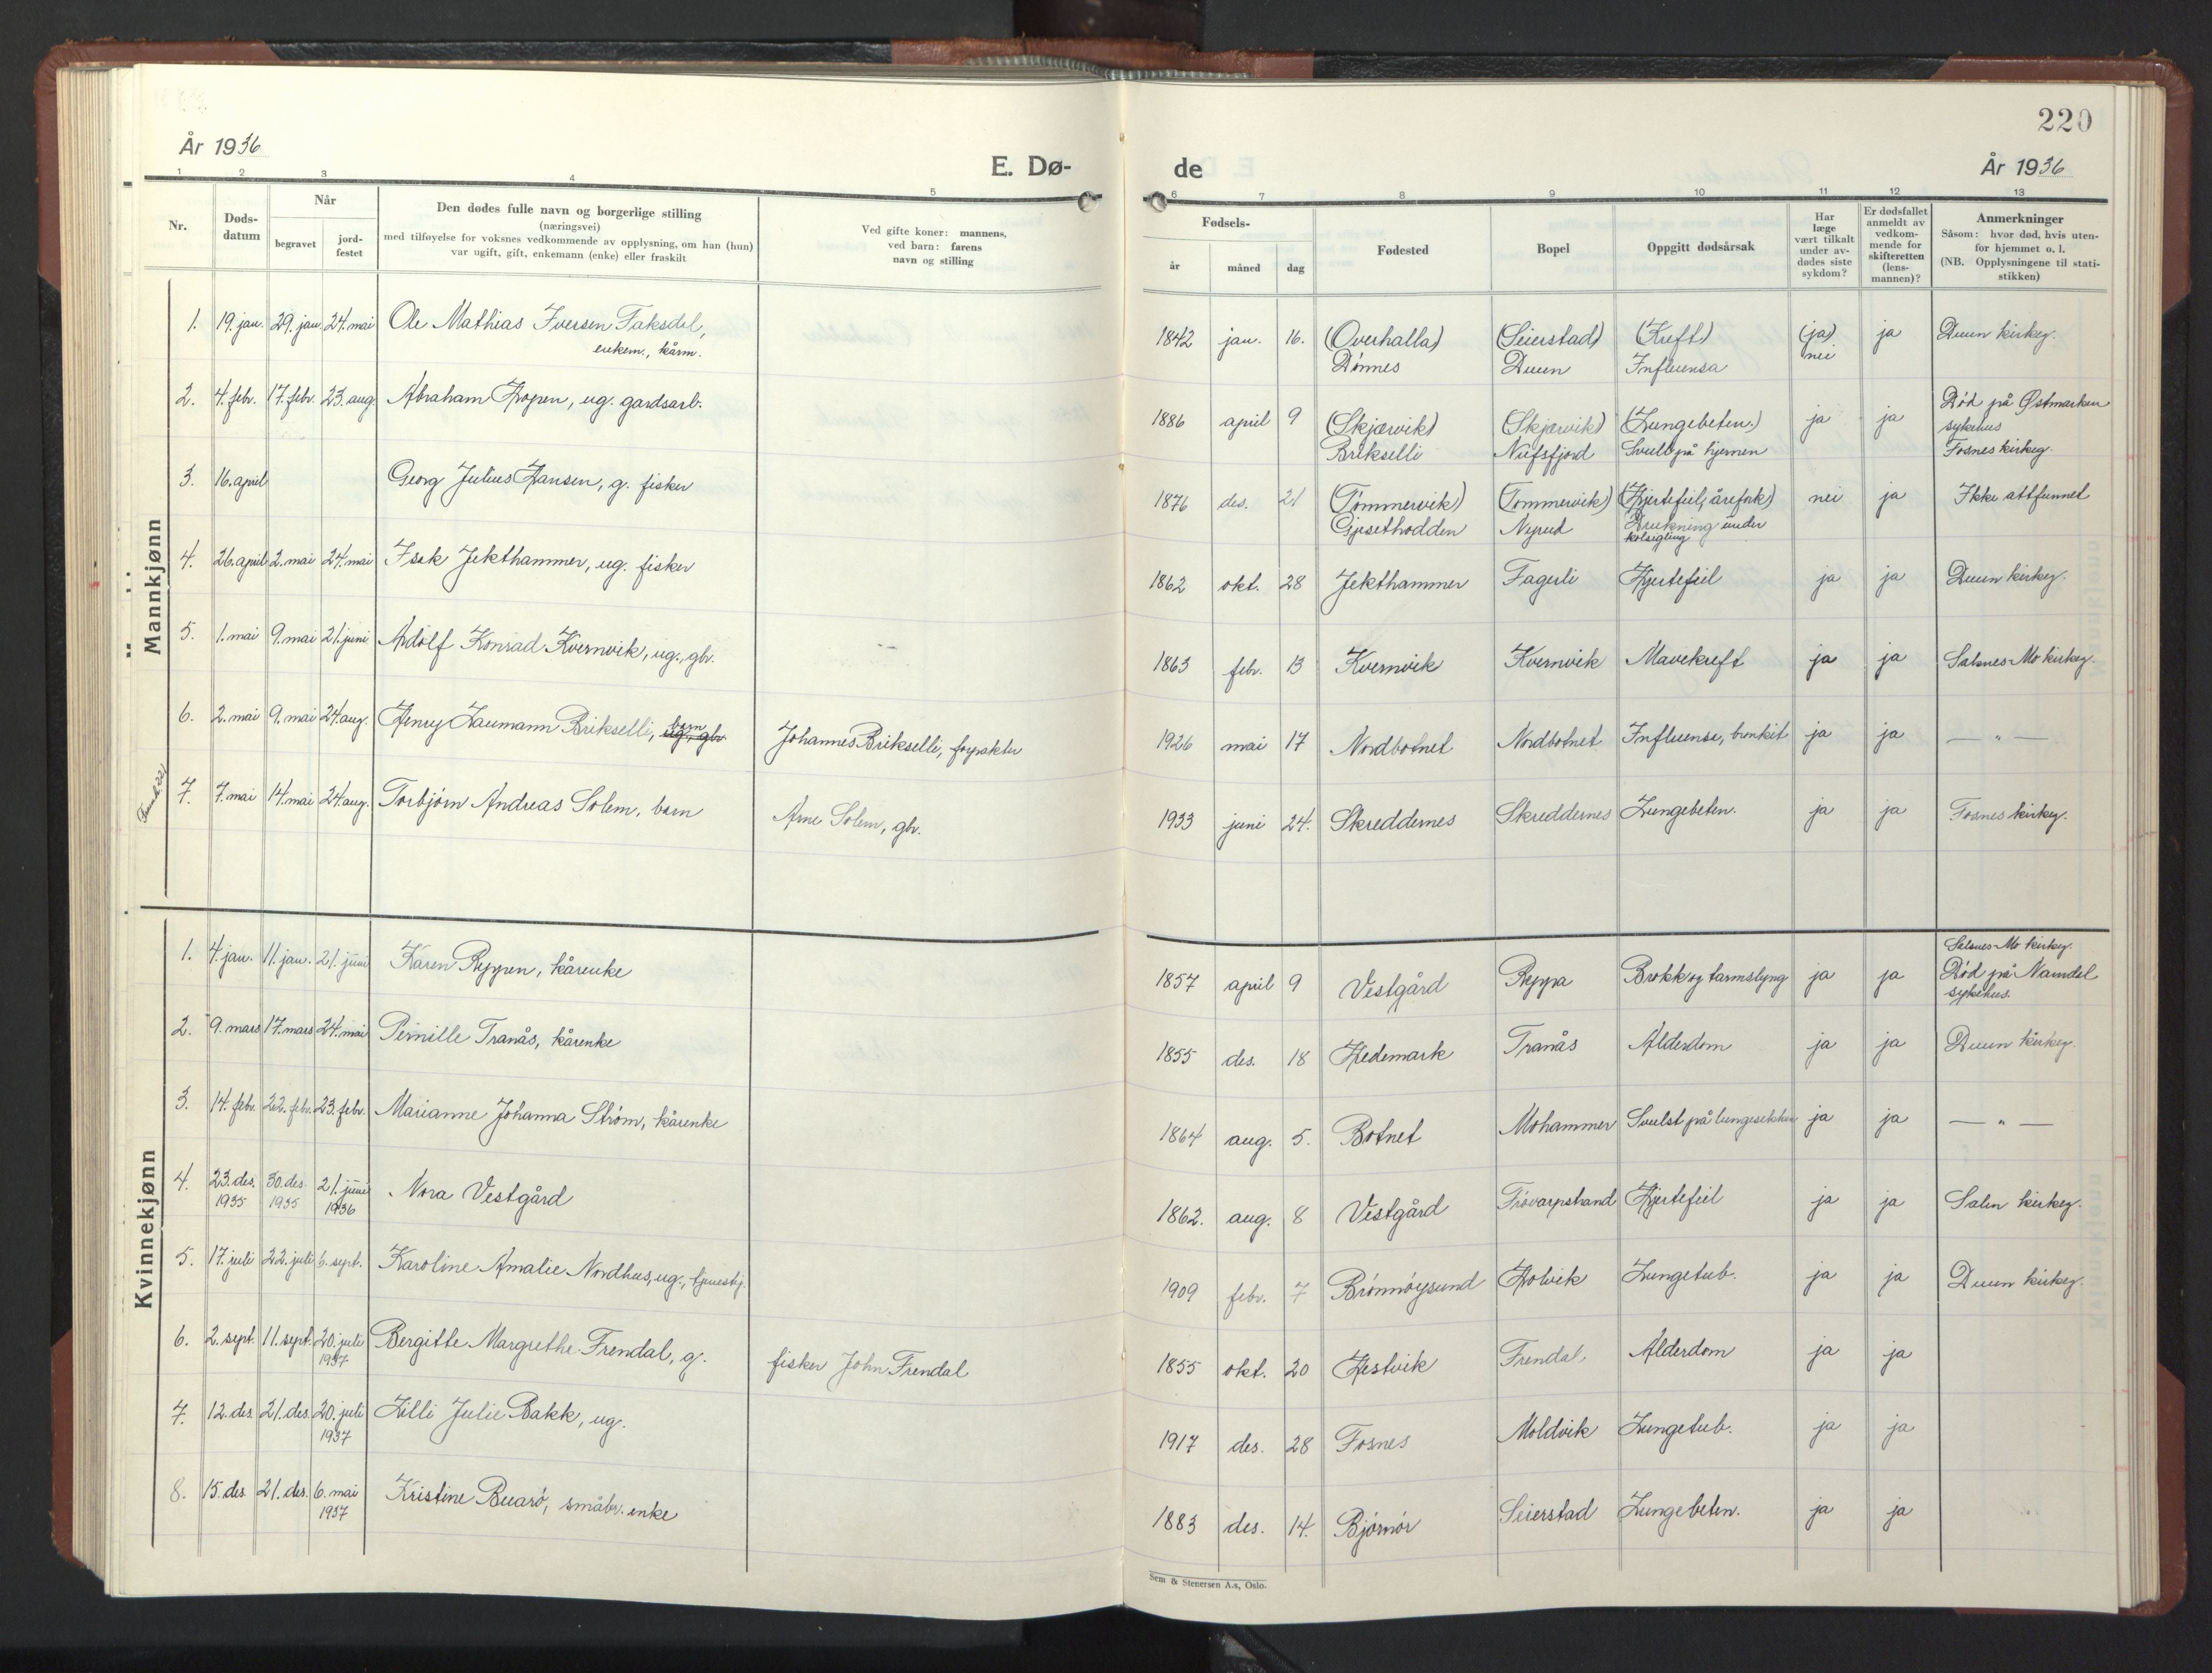 220
År 1936
E. Dø-
de
År 1936
1 2 3 4 5
6 7 8 9 10 11 12 13
Nr.
Døds-
datum
Når
begravet
jord-
festet
Den dødes fulle navn og borgerlige stilling
(næringsvei)
med tilføyelse for voksnes vedkommende av opplysning, om han (hun)
var ugift, gift, enkemann (enke) eller fraskilt
Ved gifte koner: mannens,
ved barn: farens
navn og stilling
Fødsels-
år måned dag
Fødested
Bopel
Oppgitt dødsårsak
Har
læge
vært tilkalt
under av-
dødes siste
sykdom?
Er dødsfallet
anmeldt av
vedkom-
mende for
skifteretten
(lens-
mannen)?
Anmerkninger
Såsom: hvor død, hvis uten-
for hjemmet o. l.
(NB. Opplysningene til stati-
stikken)
Mannkjønn
1. 19. jan. 29. jan. 24. mai Ole Mathias Iversen Faksdal,
enkem., kårm.
1842 jan. 16. (Overhalla) (Seierstad) (Kreft) (ja) ja Duun kirkeg.
Dönnes Duun Influensa nei
2. 4. febr. 17. febr. 23. aug. Abraham Hopen, ug. gardsarb.
1886 april 9 (Skjærvik) (Skjærvik) (Lungebeten.) ja ja Död på Østmarken
sykehus
Brikselli Nufsfjord Svulst på hjernen Fosnes kirkeg.
3. 16. april Georg Julius Hansen, g. fisker
1876 des. 21 (Tömmervik) (Tommervik) (Hjertefeil, årefork) nei ja Ikke attfunnet
Gjesethodden Nyrud Drukning under
kolsigling
4. 26. april 2. mai 24. mai Isak Jekthammer, ug. fisker
1862 okt. 28 Jekthammer Fagerli Hjertefeil ja ja Duun kirkeg.
5. 1. mai 9. mai 21. juni Adolf Konrad Kvernvik, ug., gbr.
1863 febr. 13 Kvernvik Kvernvik Mavekreft ja ja Salsnes-Mo kirkeg.
6. 2. mai 9. mai 24. aug. Henry Laumann Brikselli, ug. gbr. barn Johannes Brikselli, forpakter
1926 mai 17 Nordbotnet Nordbotnet Influensa, bronkit ja ja — " —
7. 7. mai 14. mai 24. aug. Torbjörn Andreas Solem, barn Arne Solem, gbr.
1933 juni 24. Skreddernes Skreddernes Lungebeten. ja ja Fosnes kirkeg.
Kvinnekjønn
1. 4. jan. 11. jan. 21. juni Karen Reppen, kårenke
1857 april 9 Vestgård Reppa Brokk og tarmslyng ja ja Salsnes-Mo kirkeg.
Död på Namdal
sykehus.
2. 9. mars 17. mars 24. mai Pernille Tranås, kårenke
1855 des. 18 Hedemark Tranås Alderdom ja ja Duun kirkeg.
3. 14. febr. 22. febr. 23. febr. Marianne Johanna Ström, kårenke
1864 aug. 5. Botnet Mohammer Svulst på lungesekken ja ja — " —
4. 23. des. 1935 30. des. 1935 21. juni 1936 Nora Vestgård
1862. aug. 8 Vestgård Frövarpstrand Hjertefeil ja ja Salen kirkeg.
5. 17. juli 22. juli 6. sept. Karoline Amalie Nordhus, ug., tjenestj.
1909 febr. 7 Brönnöysund Holvik Lungetub. ja ja Duun kirkeg.
6. 2. sept. 11. sept. 20. juli 1937 Bergitte Margrethe Frendal, g. fisker John Frendal
1855 okt. 20 Hestvik Frendal, Alderdom ja ja
7. 12. des. 21. des. 20. juli 1937 Lilli Julie Bakk, ug.
1917 des. 28 Fosnes Moldvik Lungetub. ja ja
8. 15. des. 21. des. 6. mai 1937 Kristine Buarö, småbr. enke
1883 des. 14. Björnör Seierstad Lungebeten. ja ja
Sem & Stenersen A.s, Oslo.